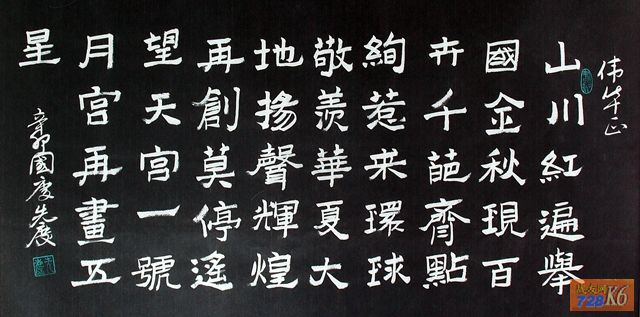 伟正
山川紅遍舉
國金秋現百
卉千葩齊點
絢惹来環球
敬羨華夏大
地揚聲輝煌
再創莫停遙
望天宮一號
月宮再畫五
星
辛卯國慶先慶
战友网
728K6